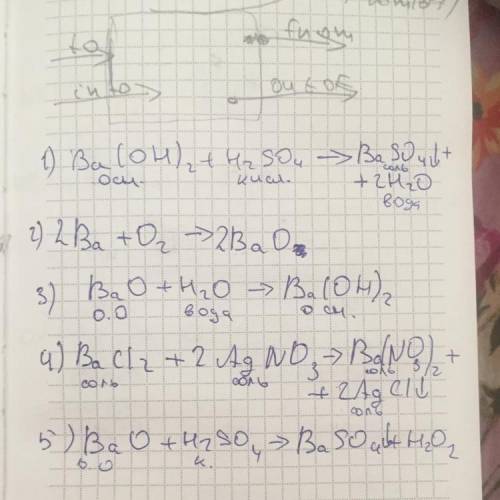 to
into
from
out of
1) Ba(OH)₂ + H₂SO₄ → BaSO₄↓ +
осн. кисл. соль
+ 2H₂O
вода
2) 2Ba + O₂ → 2BaO
3) BaO + H₂O → Ba(OH)₂
О.О вода осн.
4) BaCl₂ + 2AgNO₃ → Ba(NO₃)₂ +
соль соль соль
+ 2AgCl↓
соль
5) BaO + H₂SO₄ → BaSO₄↓ + H₂O₂
О.О к.